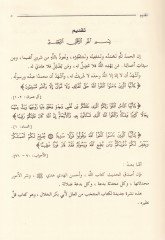 تقديم
تقديم
بسم الله الرحمن الرحيم
إن الحمد لله نحمده ونستعينه ونستغفره، ونعوذ بالله من شرور أنفسنا، ومن
سيئات أعمالنا، من يهده الله فلا مضل له، ومن يضلل فلا هادي له.
وأشهد أن لا إله إلا الله وحده لا شريك له، وأشهد أن محمداً عبده ورسوله.
﴿يا أيها الذين آمنوا اتقوا الله حق تقاته ولا تموتن إلا وأنتم مسلمون﴾
﴿يا أيها الناس اتقوا ربكم الذي خلقكم من نفس واحدة وخلق منها زوجها
وبث منهما رجالا كثيرا ونساء واتقوا الله الذي تساءلون به والأرحام إن الله كان عليكم رقيبا﴾
﴿يا أيها الذين آمنوا اتقوا الله وقولوا قولا سديدا يصلح لكم أعمالكم
ويغفر لكم ذنوبكم ومن يطع الله ورسوله فقد فاز فوزا عظيما﴾
[الأحزاب: ٧٠ - ٧١].
أما بعد
فإن أصدق الحديث كتاب الله، وأحسن الهدي هدي محمد ﷺ، وشر الأمور
محدثاتها، وكل محدثة بدعة، وكل بدعة ضلالة
كتاب المنتخب من العلل لأبي بكر الخلال، كتاب
نظيره